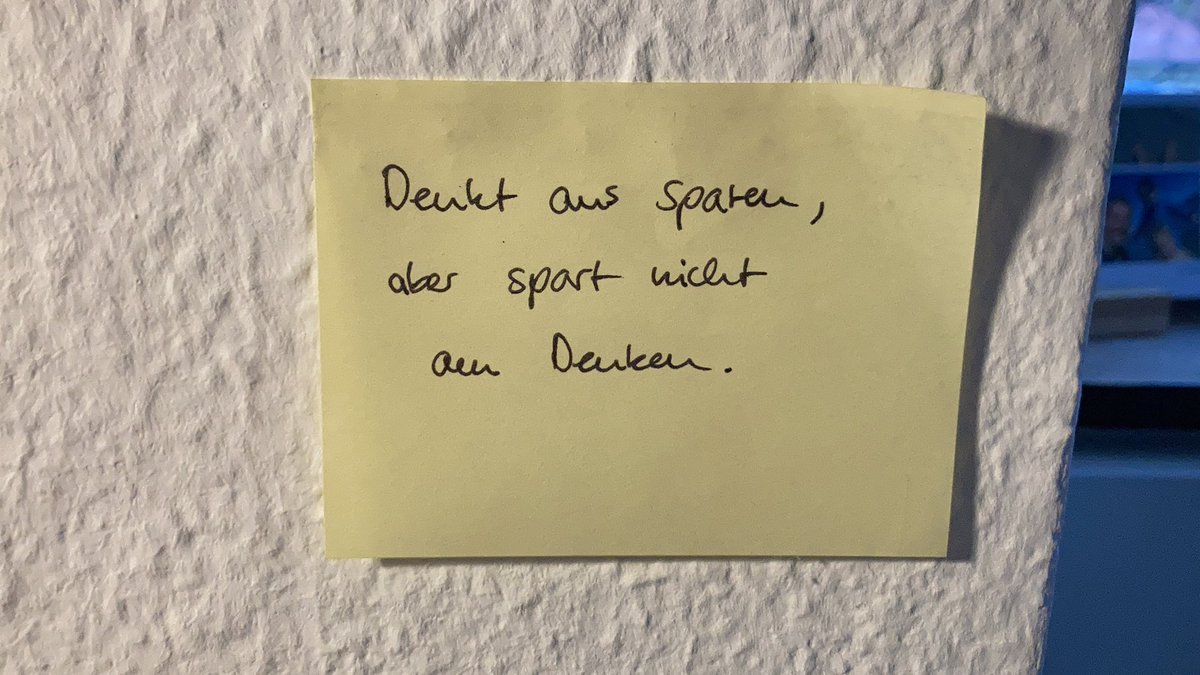 Denkt ans sparen,
aber spart nicht
am Denken.